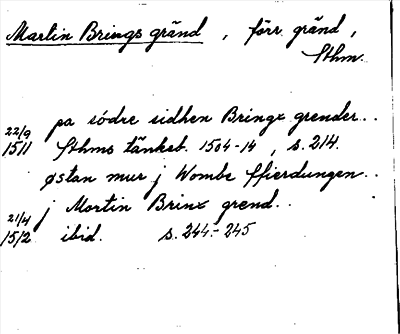 Martin Brings gränd, förr. gränd,
Sthm.
pa södre sidhen Bringx grender..
22/9 1511 Sthms tänkeb. 1504-14, s. 214.
østan mur j Wombe ffierdungen..
j Mortin Brinx grend..
21/4 1512 ibid. s. 244-245